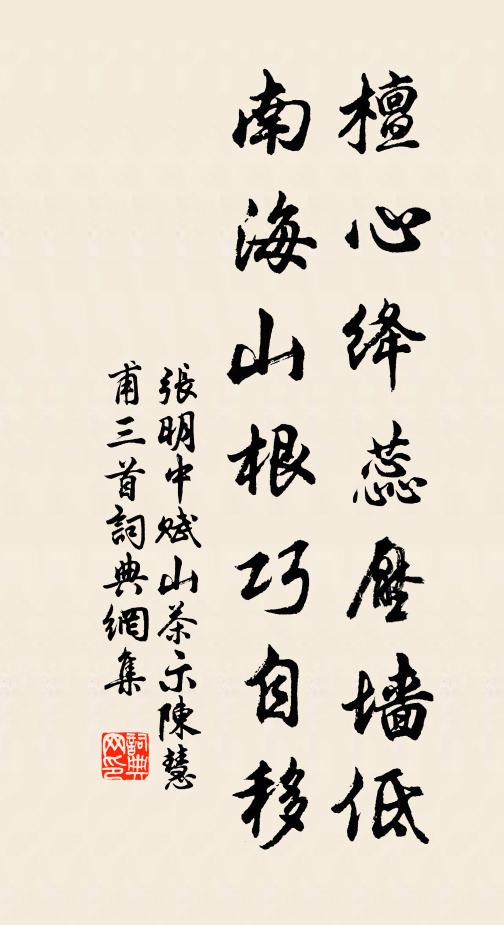 檀心绛蕊壓墙低
南海山根巧自移
張明中赋山茶示陳慧
甫三首詞典網集
詞典网印